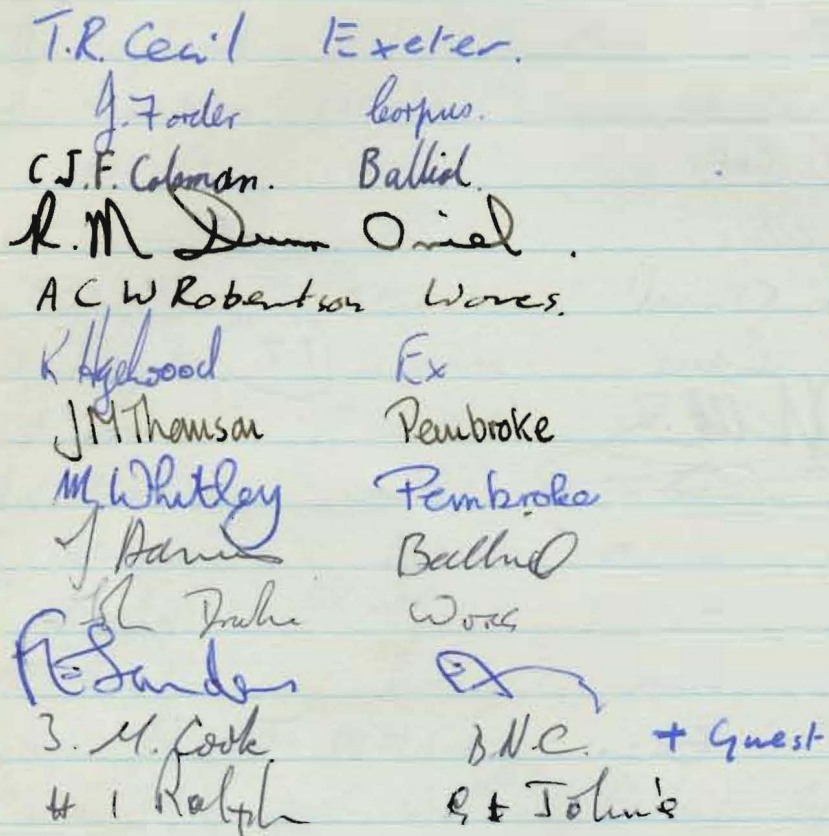 T.R. Cecil Exeter.
J. Forder Corpus.
C.J.F. Colman. Balliol.
R.M Dunn Oriel.
A C W Robertson Worcs.
K Ex
J M Thomson Pembroke
M. Whitley Pembroke
J Balliol
Drake Worcs
Sanders Ex
B. M. Cook B.N.C. + Guest
H I Ralph St John's